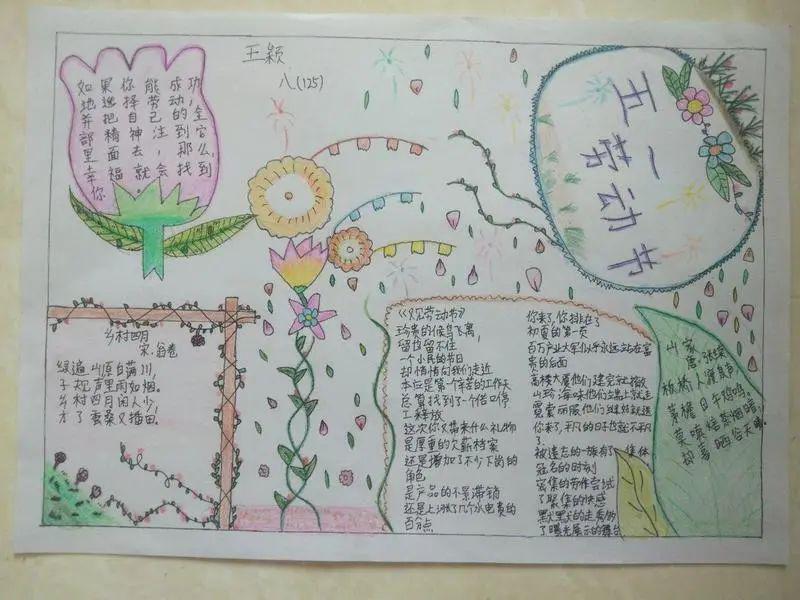 王颖
八(125)
如果你能成功
地选择劳动,
并把自己的全
部精神注到它
里面去,那么
幸福就会找到
你。
五一劳动书
乡村四月
宋.翁卷
绿遍山原白满川,
子规声里雨如烟。
乡村四月闲人少,
才了蚕桑又插田。
《又见劳动书》
珍贵的候鸟飞离,
留也留不住
一个小民的节日
却悄悄向我们走近
本应是第一个辛苦的工作天
总算找到了一个借口停
工释放
这次你又带来什么礼物
是厚重的欠薪档案
还是增加了不少下岗的
角色
是产品的不景滞销
还是上涨了几个水电费的
百分点
你来了,你排在了
初夏的第一页
百万产业大军似乎永远站在富
贵的后面
高楼大厦他们建完就撤
山珍海味他们端上就走
霓裳丽服他们缝好就送
你来了,平凡的日书就不平凡
了
被遗忘的一族有了一集体
冠名的时刻
密集的劳作尝试
了聚集的快感
默默的走秀做
了曝光展示的舞台
山家
唐.张继
板桥人渡泉声,
茅檐日午鸡鸣。
莫嗔焙茶烟暗,
却喜晒谷天晴